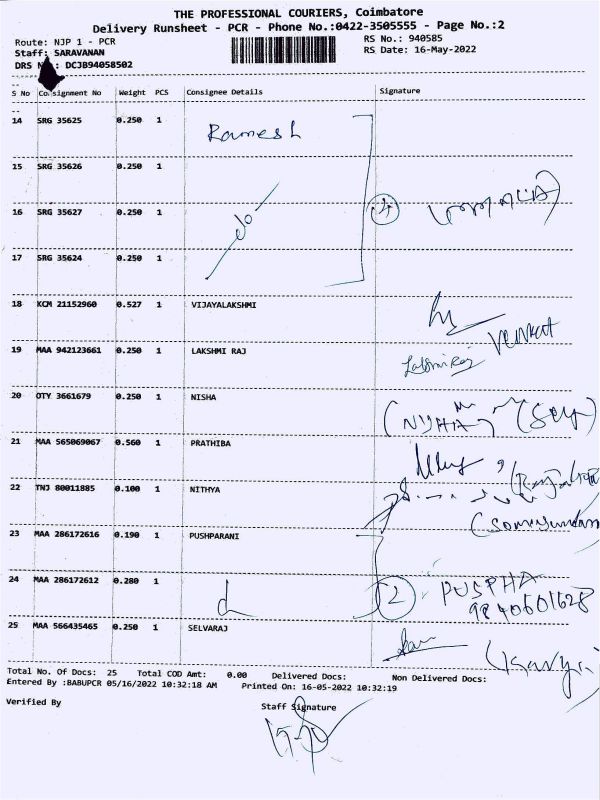 THE PROFESSIONAL COURIERS, Coimbatore
Delivery Runsheet - PCR - Phone No.:0422-3505555 - Page No.:2
Route: NJP 1 - PCR RS No.: 940585
Staff: SARAVANAN RS Date: 16-May-2022
DRS : DCJB94058502
S No Consignment No Weight PCS Consignee Details Signature
14 SRG 35625 0.250 1 Ramesh
15 SRG 35626 0.250 1
16 SRG 35627 0.250 1 do
17 SRG 35624 0.250 1
18 KCM 21152960 0.527 1 VIJAYALAKSHMI
Venkat
19 MAA 942123661 0.250 1 LAKSHMI RAJ Lakshmi Raj
20 OTY 3661679 0.250 1 NISHA (NISHA) (Self)
21 MAA 565069067 0.560 1 PRATHIBA
22 TNJ 80011885 0.100 1 NITHYA
(Somasundaram
23 MAA 286172616 0.190 1 PUSHPARANI
24 MAA 286172612 0.280 1 2 PUSPHA
9840601628
25 MAA 566435465 0.250 1 SELVARAJ (Kavya)
Total No. Of Docs: 25 Total COD Amt: 0.00 Delivered Docs: Non Delivered Docs:
Entered By :BABUPCR 05/16/2022 10:32:18 AM Printed On: 16-05-2022 10:32:19
Verified By Staff Signature